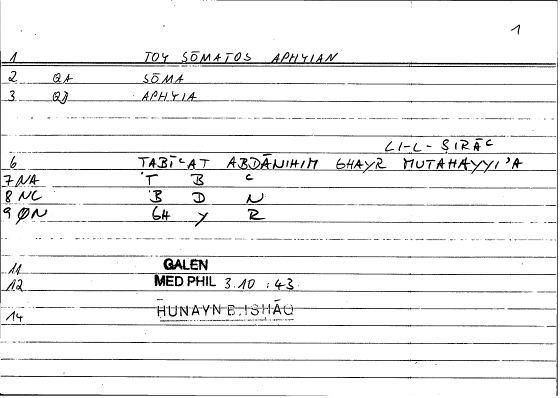 1
1 TOY SŌMATOS APHYIAN
2 QA SŌMA
3 QD APHYIA
LI-L-ṢIRĀC
6 TABĪCAT ABDĀNIHIM GHAYR MUTAHAYYI'A
7 NA T B C
8 NC B D N
9 ØN GH Y R
11 GALEN
12 MED PHIL 3.10 : 43
14 HUNAYN B. ISHĀQ